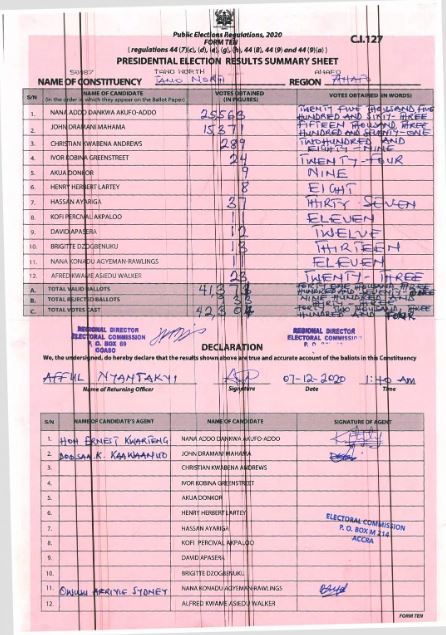 Public Elections Regulations, 2020
FORM TEN
C.I.127
( regulations 44 (7)(c), (d), (e), (g), (h), 44 (8), 44 (9) and 44 (9)(a) )
PRESIDENTIAL ELECTION RESULTS SUMMARY SHEET
TANO NORTH AHAFO
NAME OF CONSTITUENCY TANO NORTH REGION AHAFO
S/N NAME OF CANDIDATE VOTES OBTAINED VOTES OBTAINED (IN WORDS)
(in the order in which they appear on the Ballot Paper) (IN FIGURES)
1. NANA ADDO DANKWA AKUFO-ADDO 25,563 TWENTY FIVE THOUSAND FIVE HUNDRED AND SIXTY-THREE
2. JOHN DRAMANI MAHAMA 15,371 FIFTEEN THOUSAND THREE HUNDRED AND SEVENTY-ONE
3. CHRISTIAN KWABENA ANDREWS 289 TWO HUNDRED AND EIGHTY-NINE
4. IVOR KOBINA GREENSTREET 24 TWENTY-FOUR
5. AKUA DONKOR 9 NINE
6. HENRY HERBERT LARTEY 8 EIGHT
7. HASSAN AYARIGA 37 THIRTY SEVEN
8. KOFI PERCIVAL AKPALOO 11 ELEVEN
9. DAVID APASERA 12 TWELVE
10. BRIGITTE DZOGBENUKU 13 THIRTEEN
11. NANA KONADU AGYEMAN-RAWLINGS 11 ELEVEN
12. ALFRED KWAME ASIEDU WALKER 23 TWENTY-THREE
A. TOTAL VALID BALLOTS 41,371
B. TOTAL REJECTED BALLOTS NINE HUNDRED AND
C. TOTAL VOTES CAST 42,304 FORTY TWO THOUSAND THREE HUNDRED AND FOUR
REGIONAL DIRECTOR
ELECTORAL COMMISSION
P. O. BOX 69
GOASO
REGIONAL DIRECTOR
ELECTORAL COMMISSION
DECLARATION
We, the undersigned, do hereby declare that the results shown above are true and accurate account of the ballots in this Constituency
AFFUL NYANTAKYI 07-12-2020 1:40 AM
Name of Returning Officer Signature Date Time
S/N NAME OF CANDIDATE'S AGENT NAME OF CANDIDATE SIGNATURE OF AGENT
1. HON ERNEST KWARTENG NANA ADDO DANKWA AKUFO-ADDO
2. JOHN DRAMANI MAHAMA
3. CHRISTIAN KWABENA ANDREWS
4. IVOR KOBINA GREENSTREET
5. AKUA DONKOR
6. HENRY HERBERT LARTEY
7. HASSAN AYARIGA
8. KOFI PERCIVAL AKPALOO
9. DAVID APASERA
10. BRIGITTE DZOGBENUKU
11. SYDNEY NANA KONADU AGYEMAN-RAWLINGS
12. ALFRED KWAME ASIEDU WALKER
ELECTORAL COMMISSION
P. O. BOX M 214
ACCRA
FORM TEN